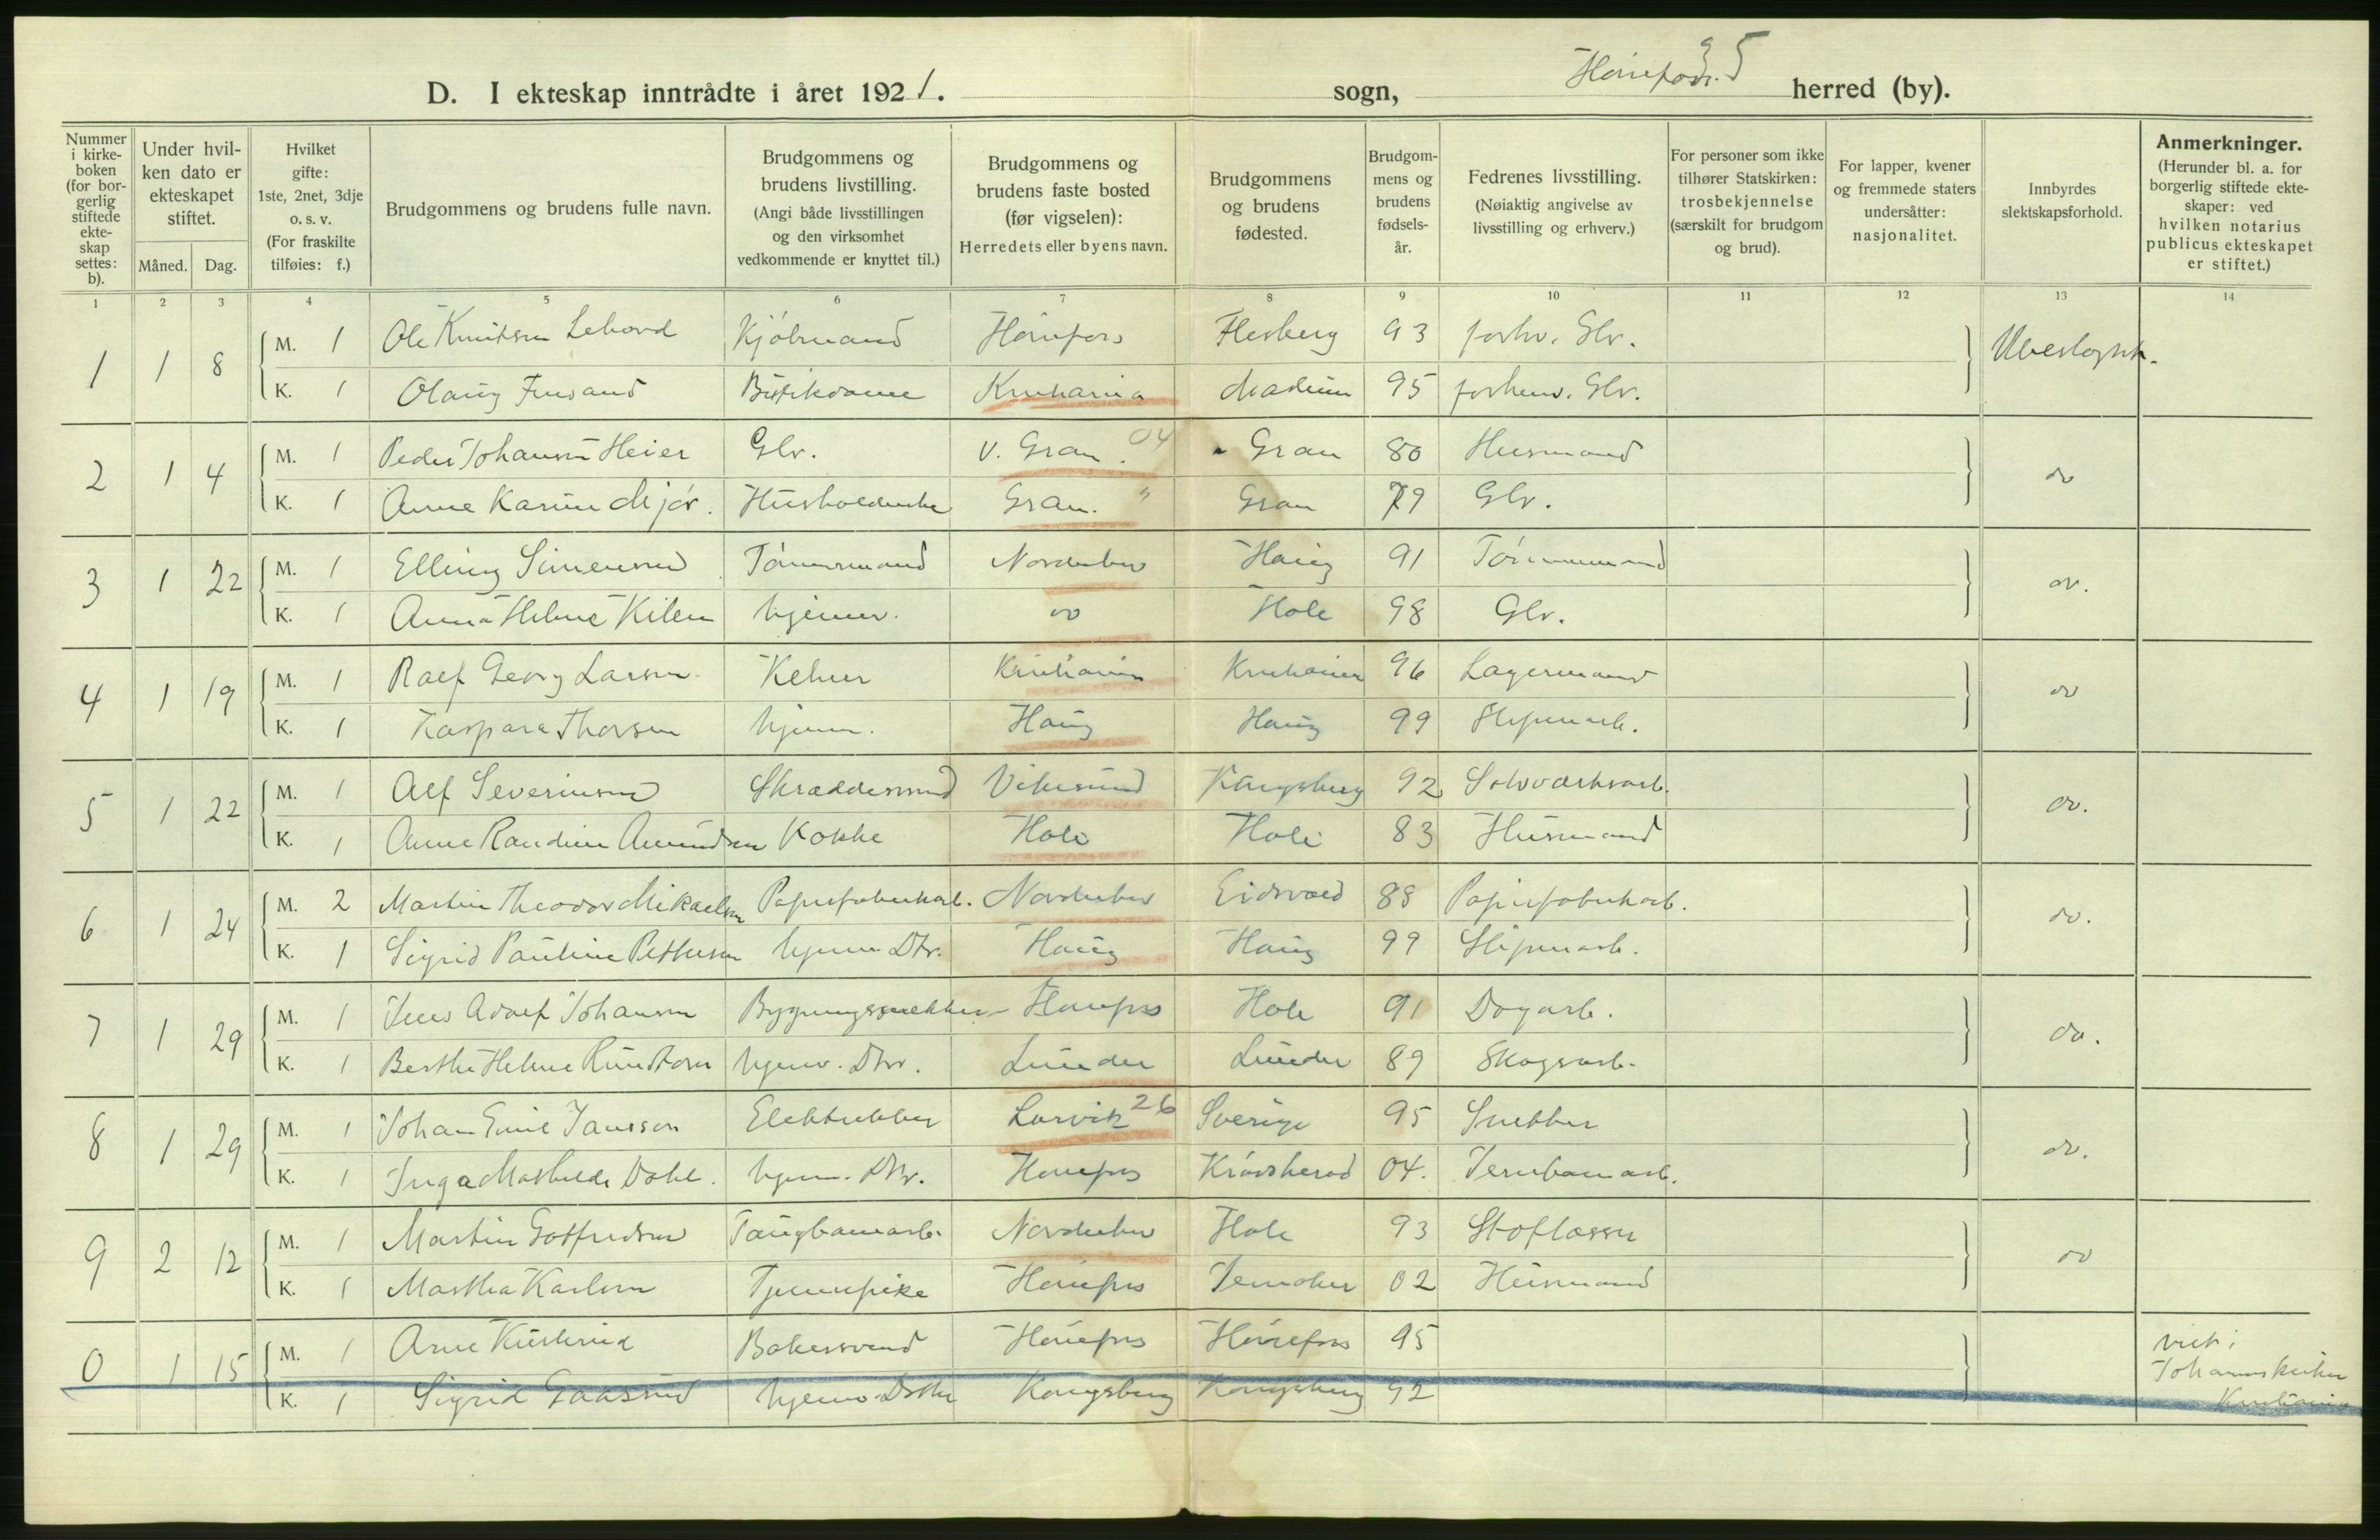 35
D. I ekteskap inntrådte i året 1921. sogn, Hønefoss herred (by).
Nummer i kirkeboken (for borgerlig stiftede ekteskap settes: b).
Under hvilken dato er ekteskapet stiftet.
Måned. Dag.
Hvilket gifte: 1ste, 2net, 3dje o. s. v. (For fraskilte tilføies: f.)
Brudgommens og brudens fulle navn.
Brudgommens og brudens livstilling. (Angi både livsstillingen og den virksomhet vedkommende er knyttet til.)
Brudgommens og brudens faste bosted (før vigselen): Herredets eller byens navn.
Brudgommens og brudens fødested.
Brudgommens og brudens fødselsår.
Fedrenes livsstilling. (Nøiaktig angivelse av livsstilling og erhverv.)
For personer som ikke tilhører Statskirken: trosbekjennelse (særskilt for brudgom og brud).
For lapper, kvener og fremmede staters undersåtter: nasjonalitet.
Innbyrdes slektskapsforhold.
Anmerkninger. (Herunder bl. a. for borgerlig stiftede ekteskaper: ved hvilken notarius publicus ekteskapet er stiftet.)
1 2 3 4 5 6 7 8 9 10 11 12 13 14
1 1 8 M. 1 Ole Knutsen Kjøbmand Hønefoss Flesberg 93 forhv. Gbr. Ubeslegtet.
K. 1 Olaug Butikdame Kristiania Modum 95 forhenv. Gbr.
2 1 4 M. 1 Peder Johansen Heier Gbr. V. Gran. 04 Gran 80 Husmand do
K. 1 Anne Karine Mjør. Husholderske Gran. " Gran 79 Gbr.
3 1 22 M. 1 Elling Simensen Tømmermand Norderhov Haug 91 Tømmermand do.
K. 1 Anna Helene Kilen hjemv. do Hole 98 Gbr.
4 1 19 M. 1 Ralf Georg Larsen Kelner Kristiania Kristiania 96 Lagermand do
K. 1 Kaspara Thorsen hjemv. Haug Haug 99 Sliperiarb.
5 1 22 M. 1 Alf Severinsen Skræddersvend Vikersund Kongsberg 92 Sølvverksarb. do.
K. 1 Anne Randine Amundsen Kokke Hole Hole 83 Husmand
6 1 24 M. 2 Martin Theodor Mikaelsen Papirfabrikarb. Norderhov Eidsvold 88 Papirfabrikarb. do.
K. 1 Sigrid Pauline Pettersen hjemv. Dtr. Haug Haug 99 Sliperiarb.
7 1 29 M. 1 Jens Adolf Johansen Bygningssnekker Hønefoss Hole 91 Dagarb. do.
K. 1 Berthe Helene hjemv. Dtr. Lunder Lunder 89 Skogsarb.
8 1 29 M. 1 Johan Emil Jansson Elektrikker Larvik 26 Sverige 95 Snekker do.
K. 1 Inga Mathilde Dahl. hjemv. Dtr. Hønefoss Krødsherad 04. Jernbanearb.
9 2 12 M. 1 Martin Gotfredsen Taugbanearb. Norderhov Hole 93 Stoflæsser do
K. 1 Martha Karlsen Tjenepike Hønefoss Jevnaker 02 Husmand
0 1 15 M. 1 Arne Bakersvend Hønefoss Hønefoss 95 viet i Johanneskirken Kristiania
K. 1 Sigrid Gaasrud hjemv. Datter Kongsberg Kongsberg 92